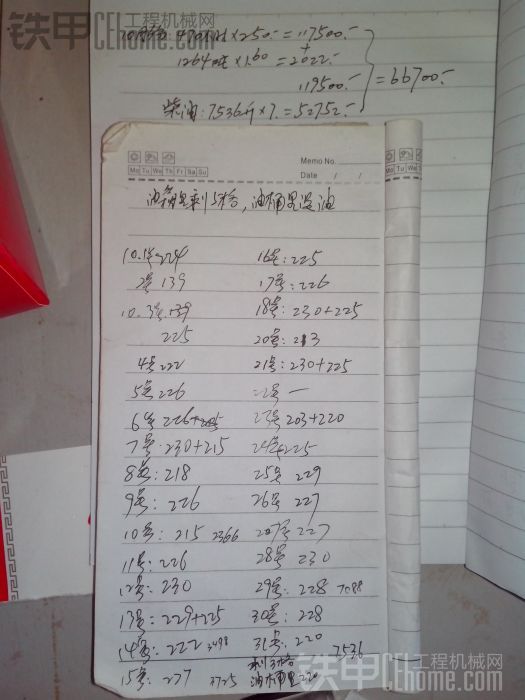 铁甲 工程机械网
CEhome
×250.- = 117500.-
12640吨×1.60 = 2022.-
+
119500.-
= 66700.-
柴油: 7536升×7. = 52752.-
Memo No.
Mo Tu We Th Fr Sa Su
Date / /
Mo Tu We T
油箱里剩5格, 油桶里没油
10.1号 224
2号 139
10.3号 139
225
4号 222
5号 226
6号 226+205
7号: 230+215
8号: 218
9号: 226
10号: 215 2366
11号: 226
12号: 230
13号: 229+225
14号: 222 3498
15号: 227 3725
16号: 225
17号: 226
18号: 230+225
20号: 213
21号: 230+225
22号 —
23号 203+220
24号 225
25号 229
26号 227
27号 227
28号 230
29号: 228 7088
30号: 228
31号: 220
7536
剩3格
油桶里220
铁甲 工程机械网
CEhome